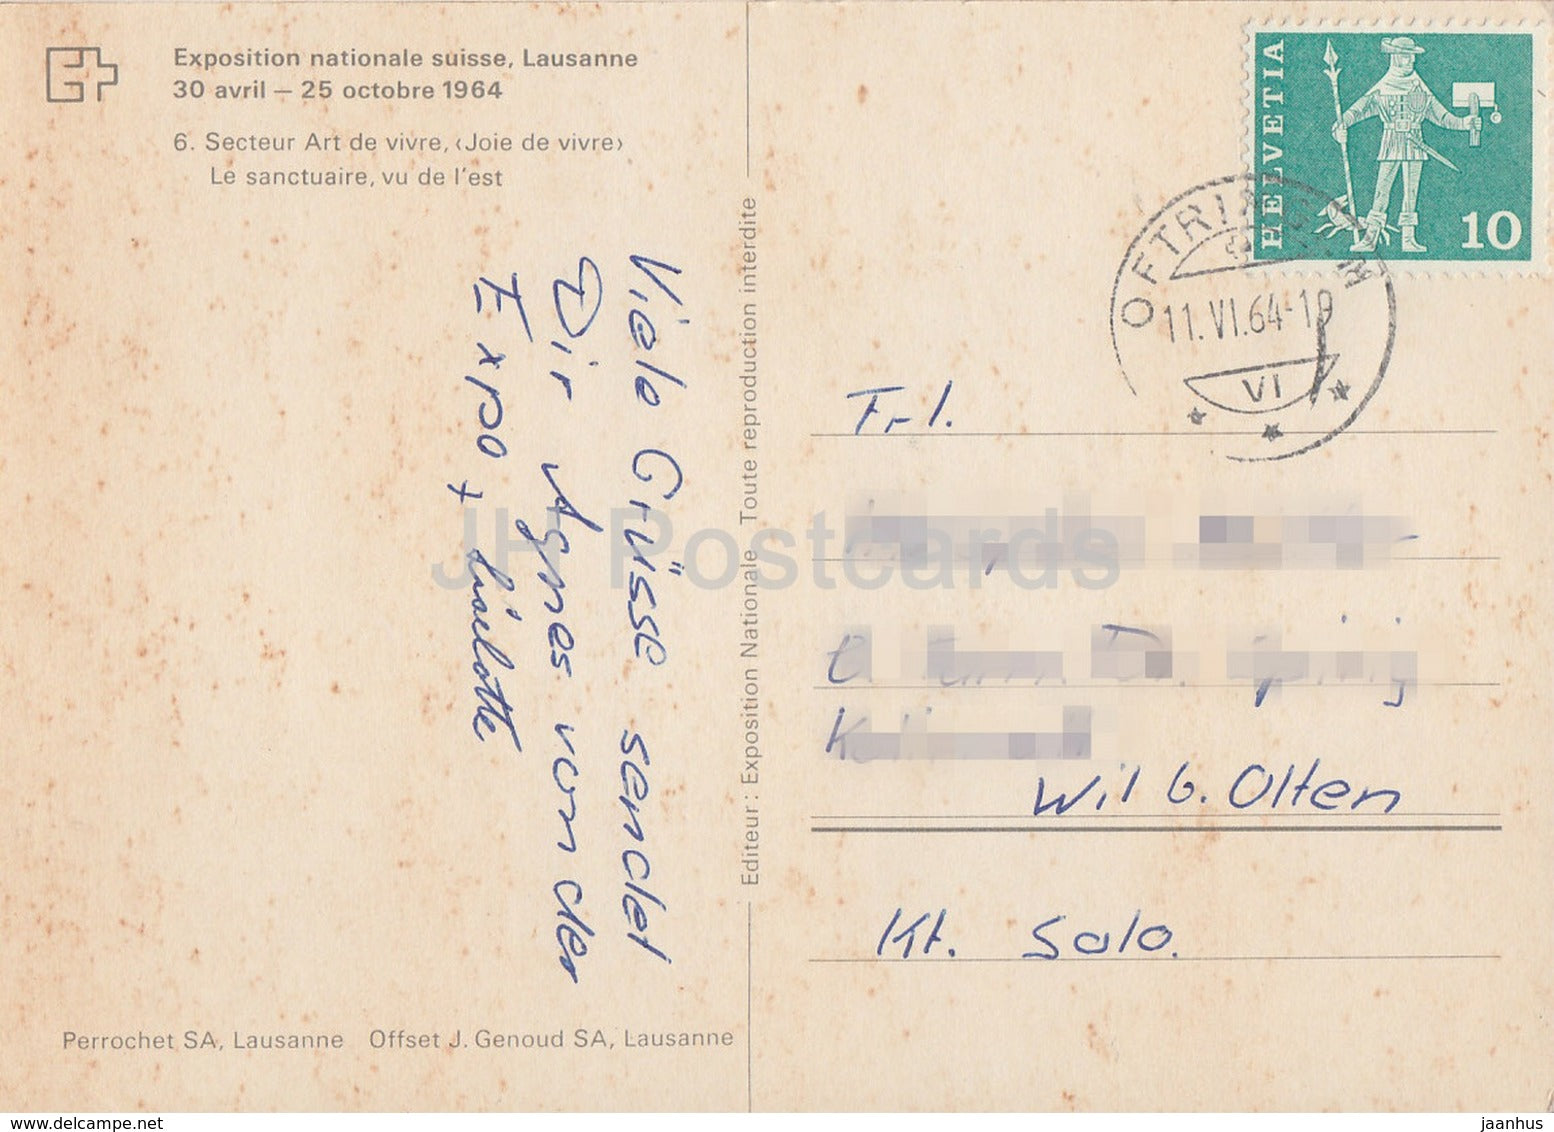 Exposition nationale suisse, Lausanne
30 avril – 25 octobre 1964
6. Secteur Art de vivre, ‹Joie de vivre›
Le sanctuaire, vu de l'est
Viele Grüsse sendet
Dir Agnes von der
Expo + Liselotte
Perrochet SA, Lausanne Offset J. Genoud SA, Lausanne
Editeur: Exposition Nationale Toute reproduction interdite
HELVETIA
10
OFTRINGEN
11.VI.64-19
VI
Frl.
Wil b. Olten
Kt. Solo.
JH Postcards
www.delcampe.net
jaanhus